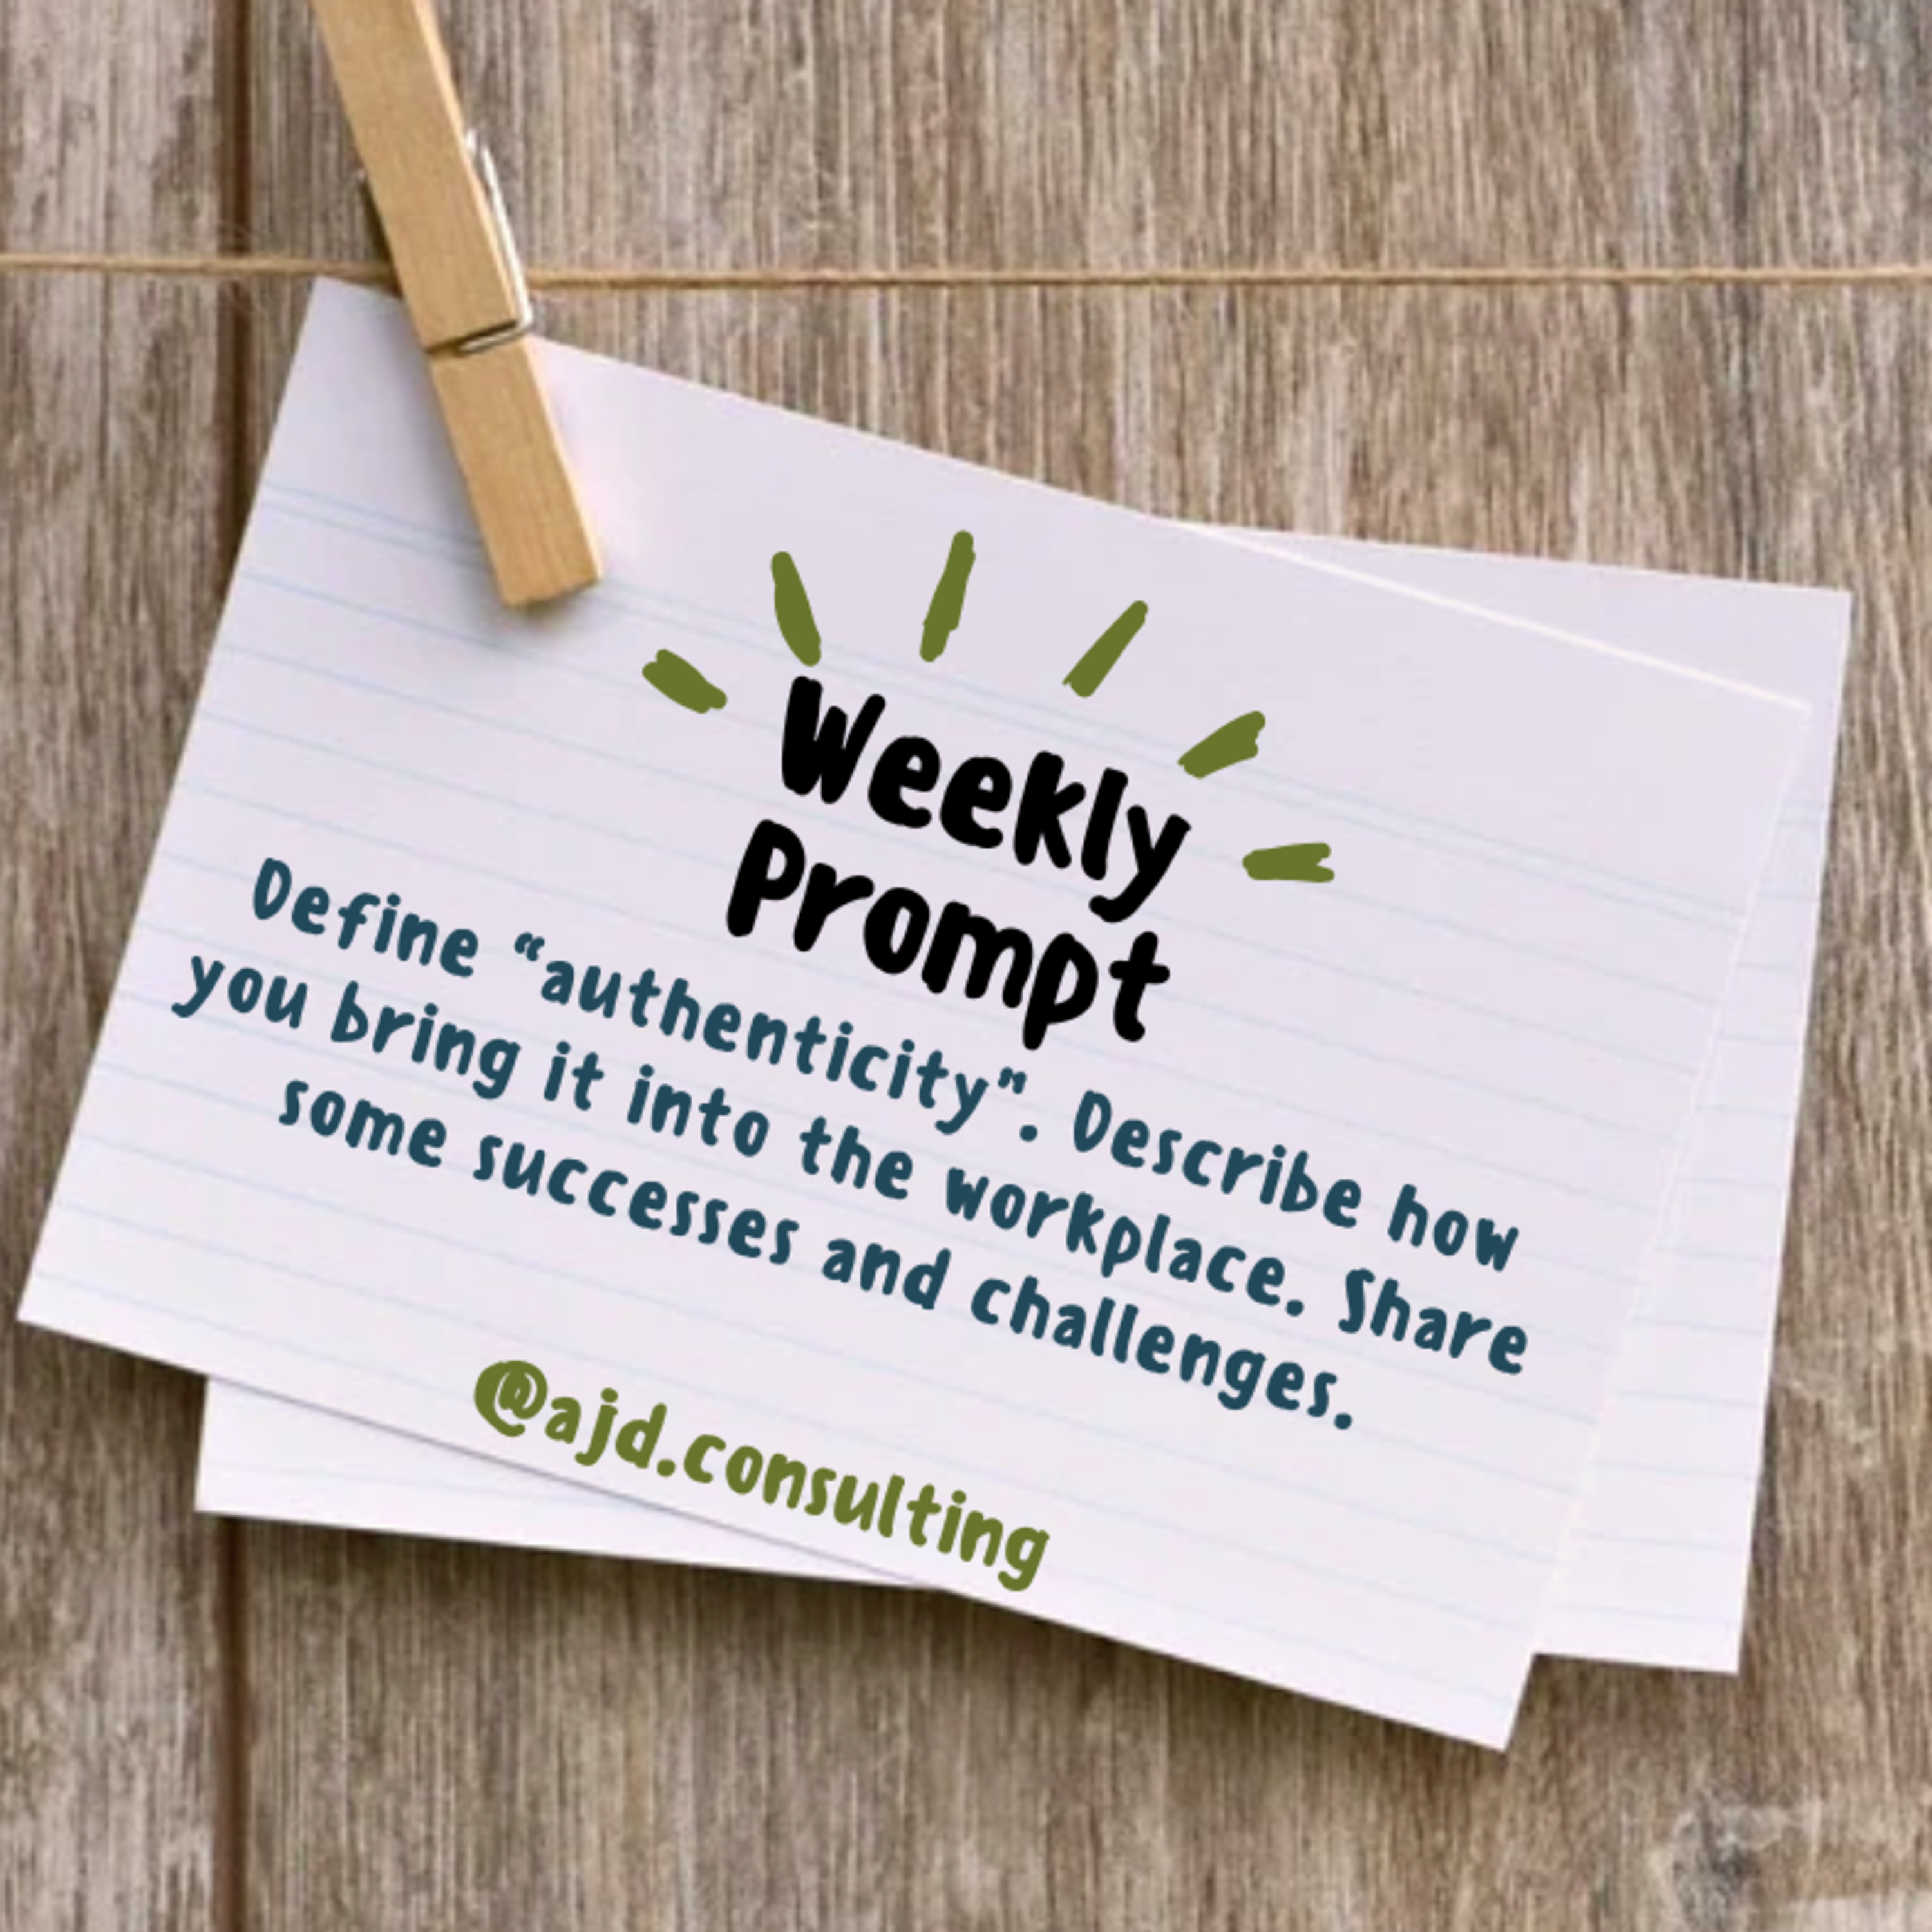 Weekly
Prompt
Define “authenticity”. Describe how
you bring it into the workplace. Share
some successes and challenges.
@ajd.consulting